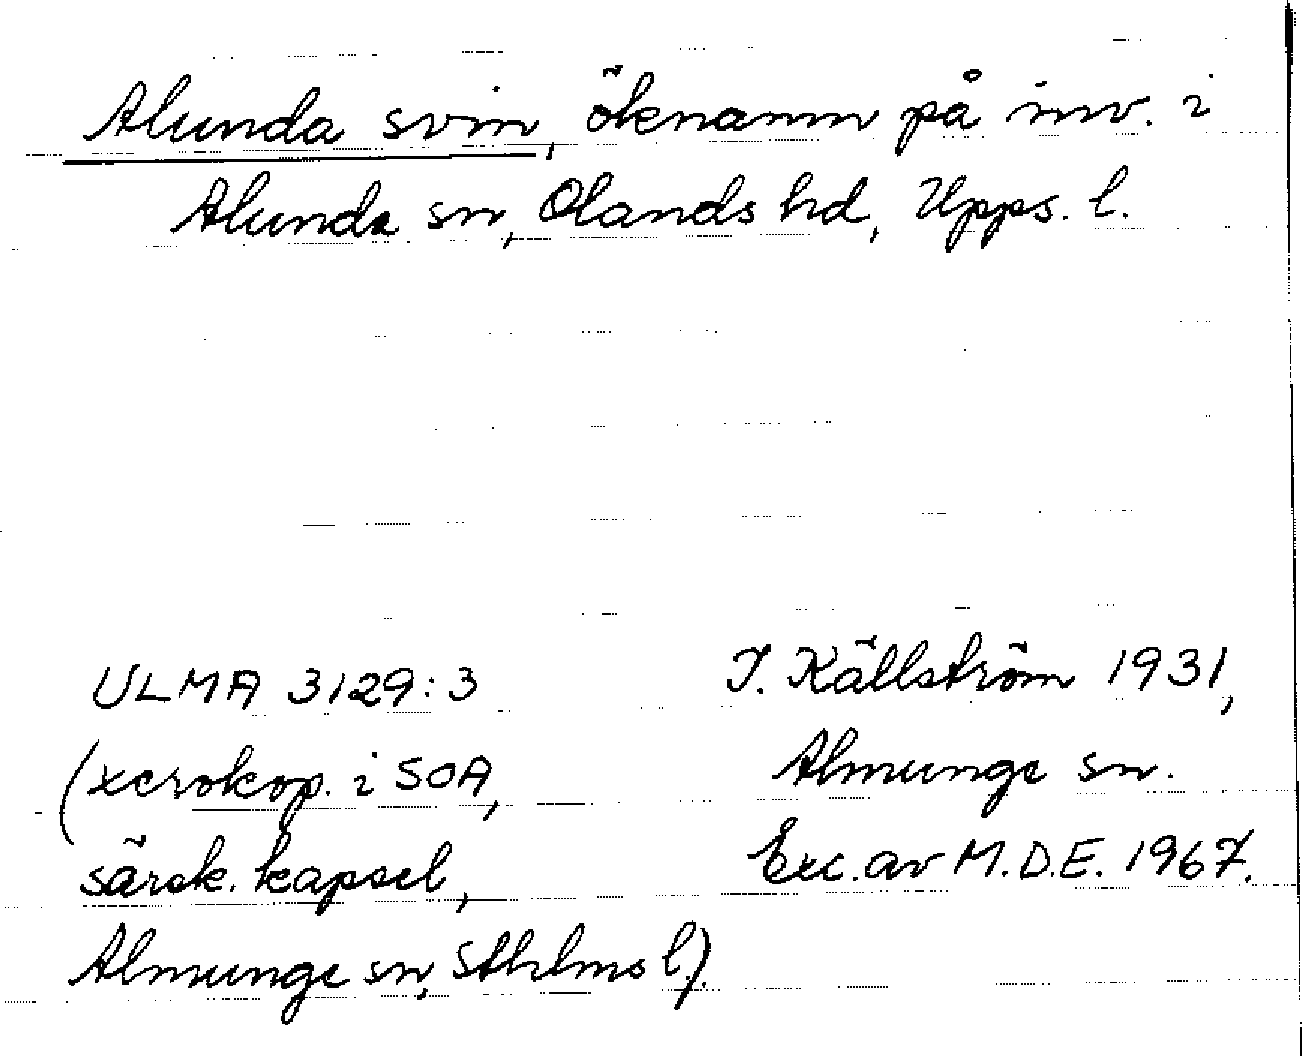 Alunda svin, öknamn på inv. i
Alunda sn, Olands hd, Upps. l.
ULMA 3129:3
(xerokop. i SOA,
särsk. kapsel,
Almunge sn, Sthlms l).
J. Källström 1931,
Almunge sn.
Exc. av M.D.E. 1967.